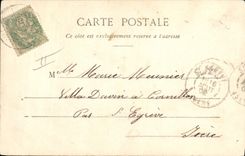 CARTE POSTALE
Ce côté est exclusivement réservé à l'adresse
Marie Meunier
Villa Davin à Cornillon
Par St Egrève
Isère